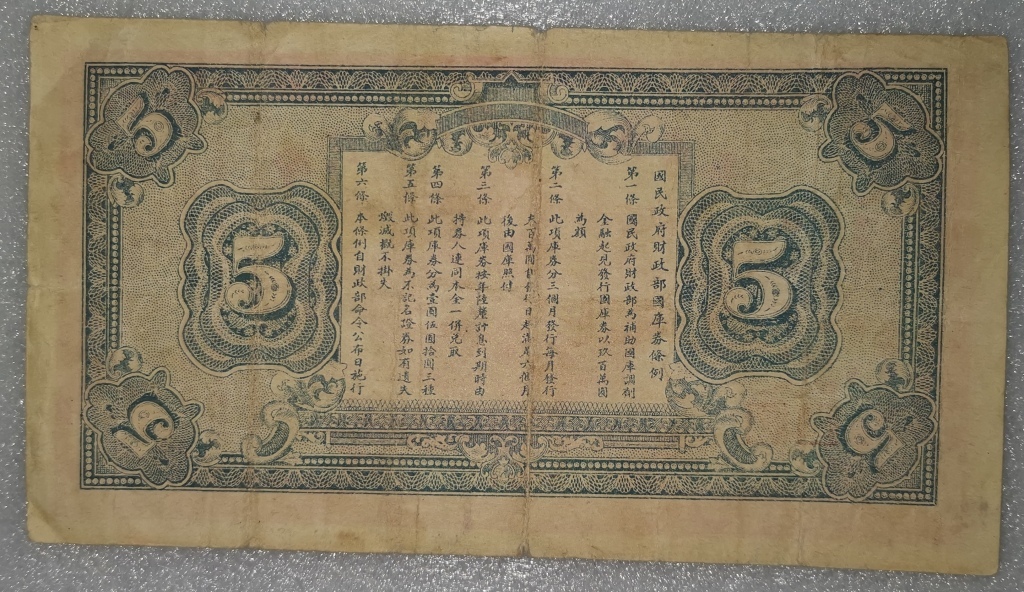 5
5
國民政府財政部國庫券條例
第一條 國民政府財政部為補助國庫調劑
金融起見發行國庫券以玖百萬圓
為額
第二條 此項庫券分三個月發行每月發行
百萬圓 日起滿足六個月
後由國庫照付
第三條 此項庫券按年陸釐計息到期時由
持券人連同本金一併兌取
第四條 此項庫券分為壹圓伍圓拾圓三種
第五條 此項庫券為不記名證券如有遺失
燬滅概不掛失
第六條 本條例自財政部命令公布日施行
5
5
5
5